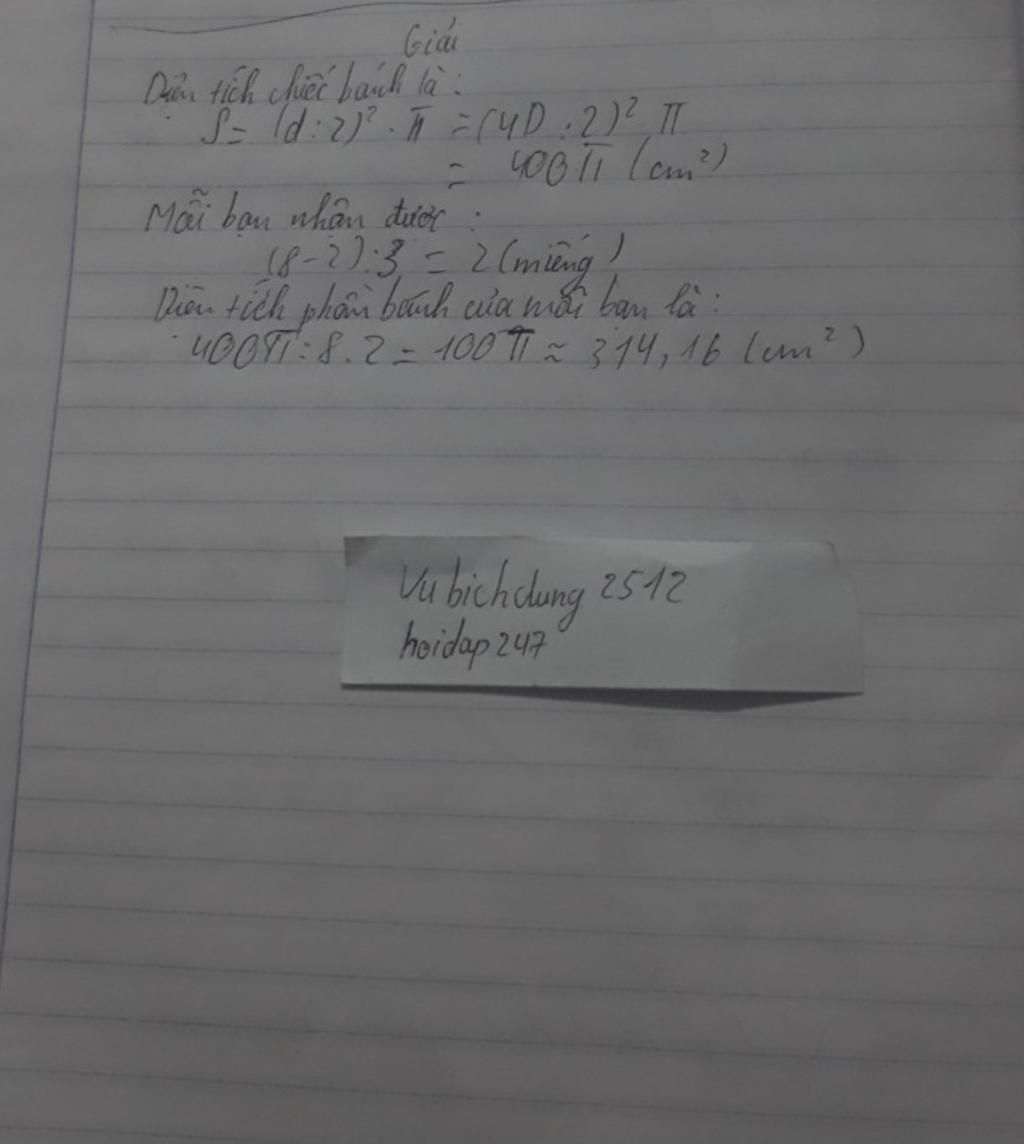 Giải
Diện tích chiếc bánh là:
S = (d : 2)² . π = (40 : 2)² . π
= 400π (cm²)
Mỗi bạn nhận được :
(8 - 2) : 3 = 2 (miếng)
Diện tích phần bánh của mỗi bạn là:
400π : 8 . 2 = 100π ≈ 314,16 (cm²)
Vubichdung 2512
hoidap247